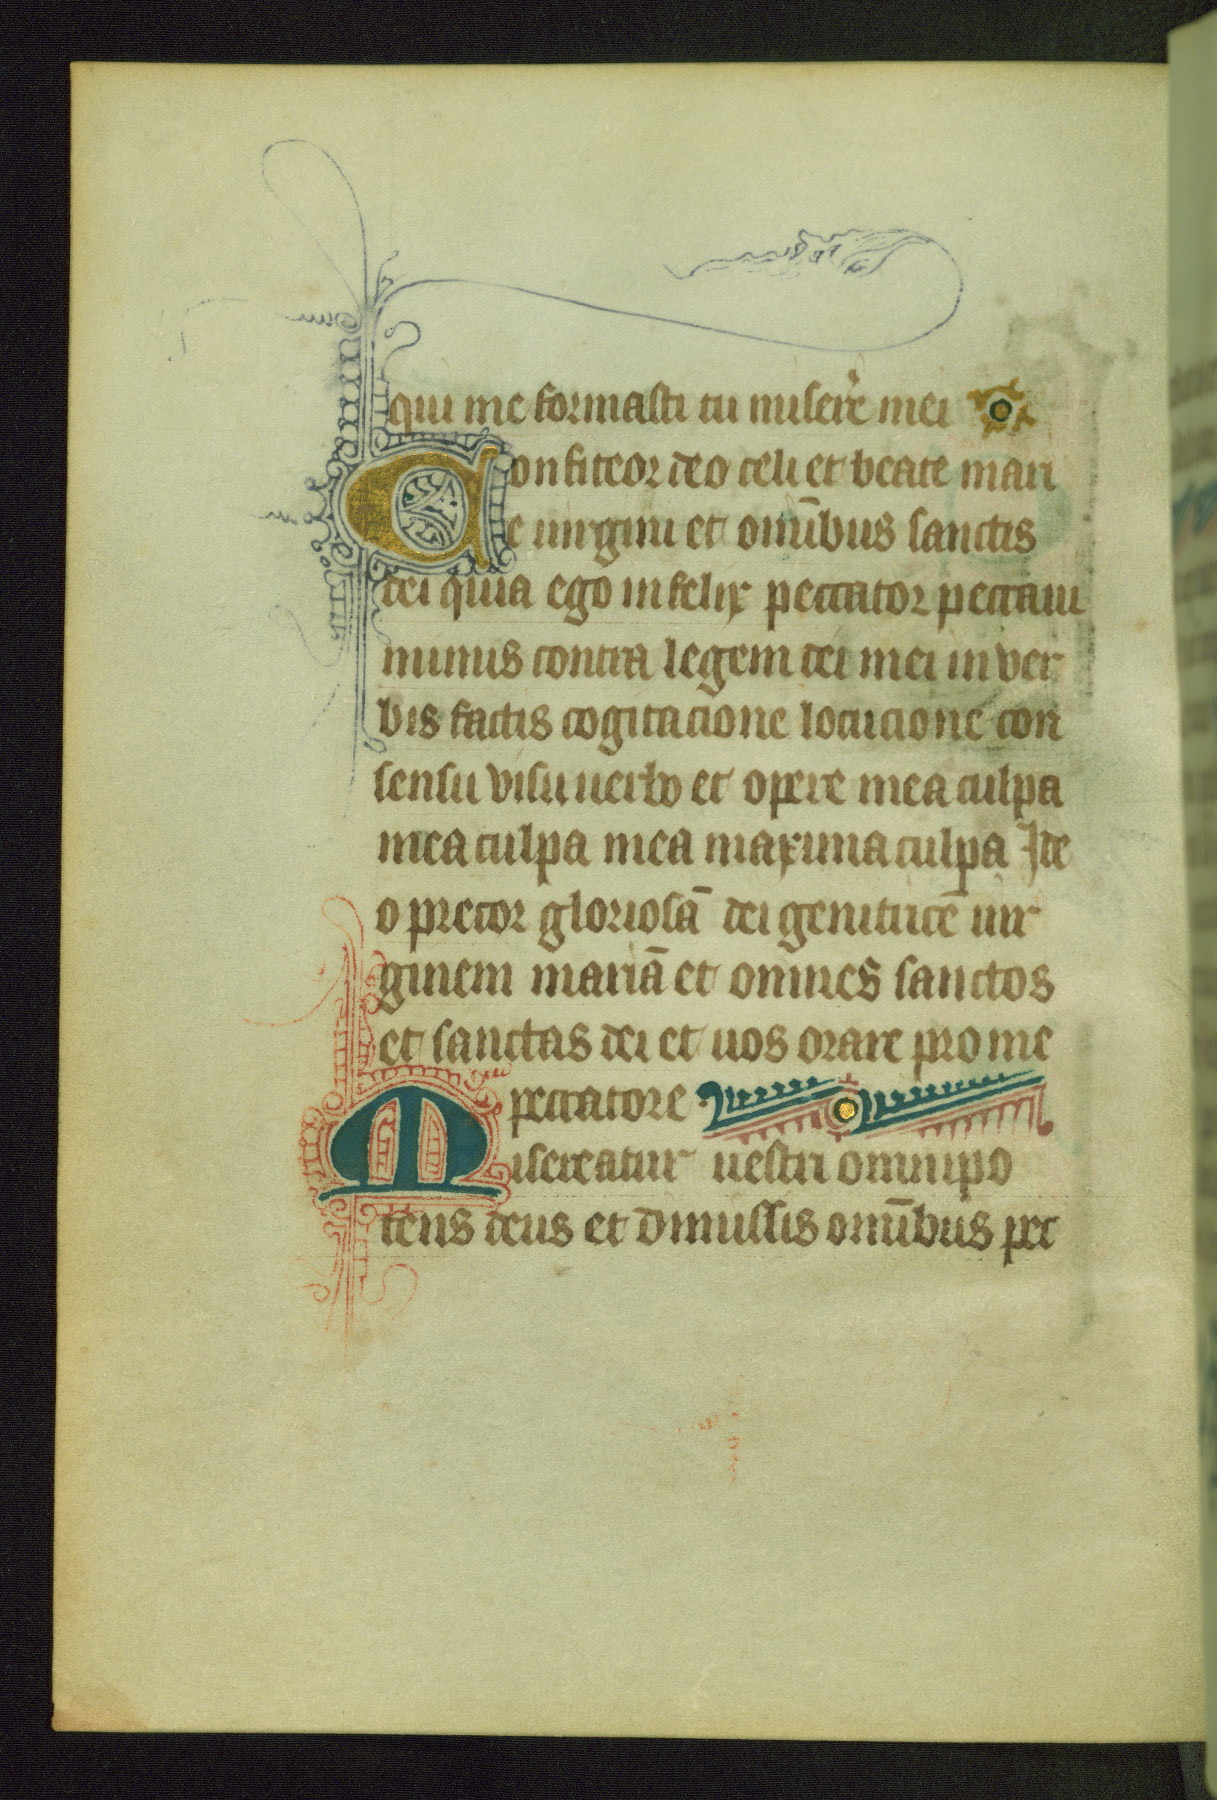 qui me formasti tu miser̄e mei
Confiteor deo celi et beate mari
e uirgini et om̄ibus sanctis
dei quia ego infelix peccator peccaui
nimis contra legem dei mei in ver
bis factis cogitacione locucione con
sensu visu uerbo et opere mea culpa
mea culpa mea maxima culpa Ide
o precor gloriosā dei genitricē uir
ginem mariā et omnes sanctos
et sanctas dei et uos orare pro me
peccatore
Misereatur uestri omnipo
tens deus et dimissis om̄ibus pec